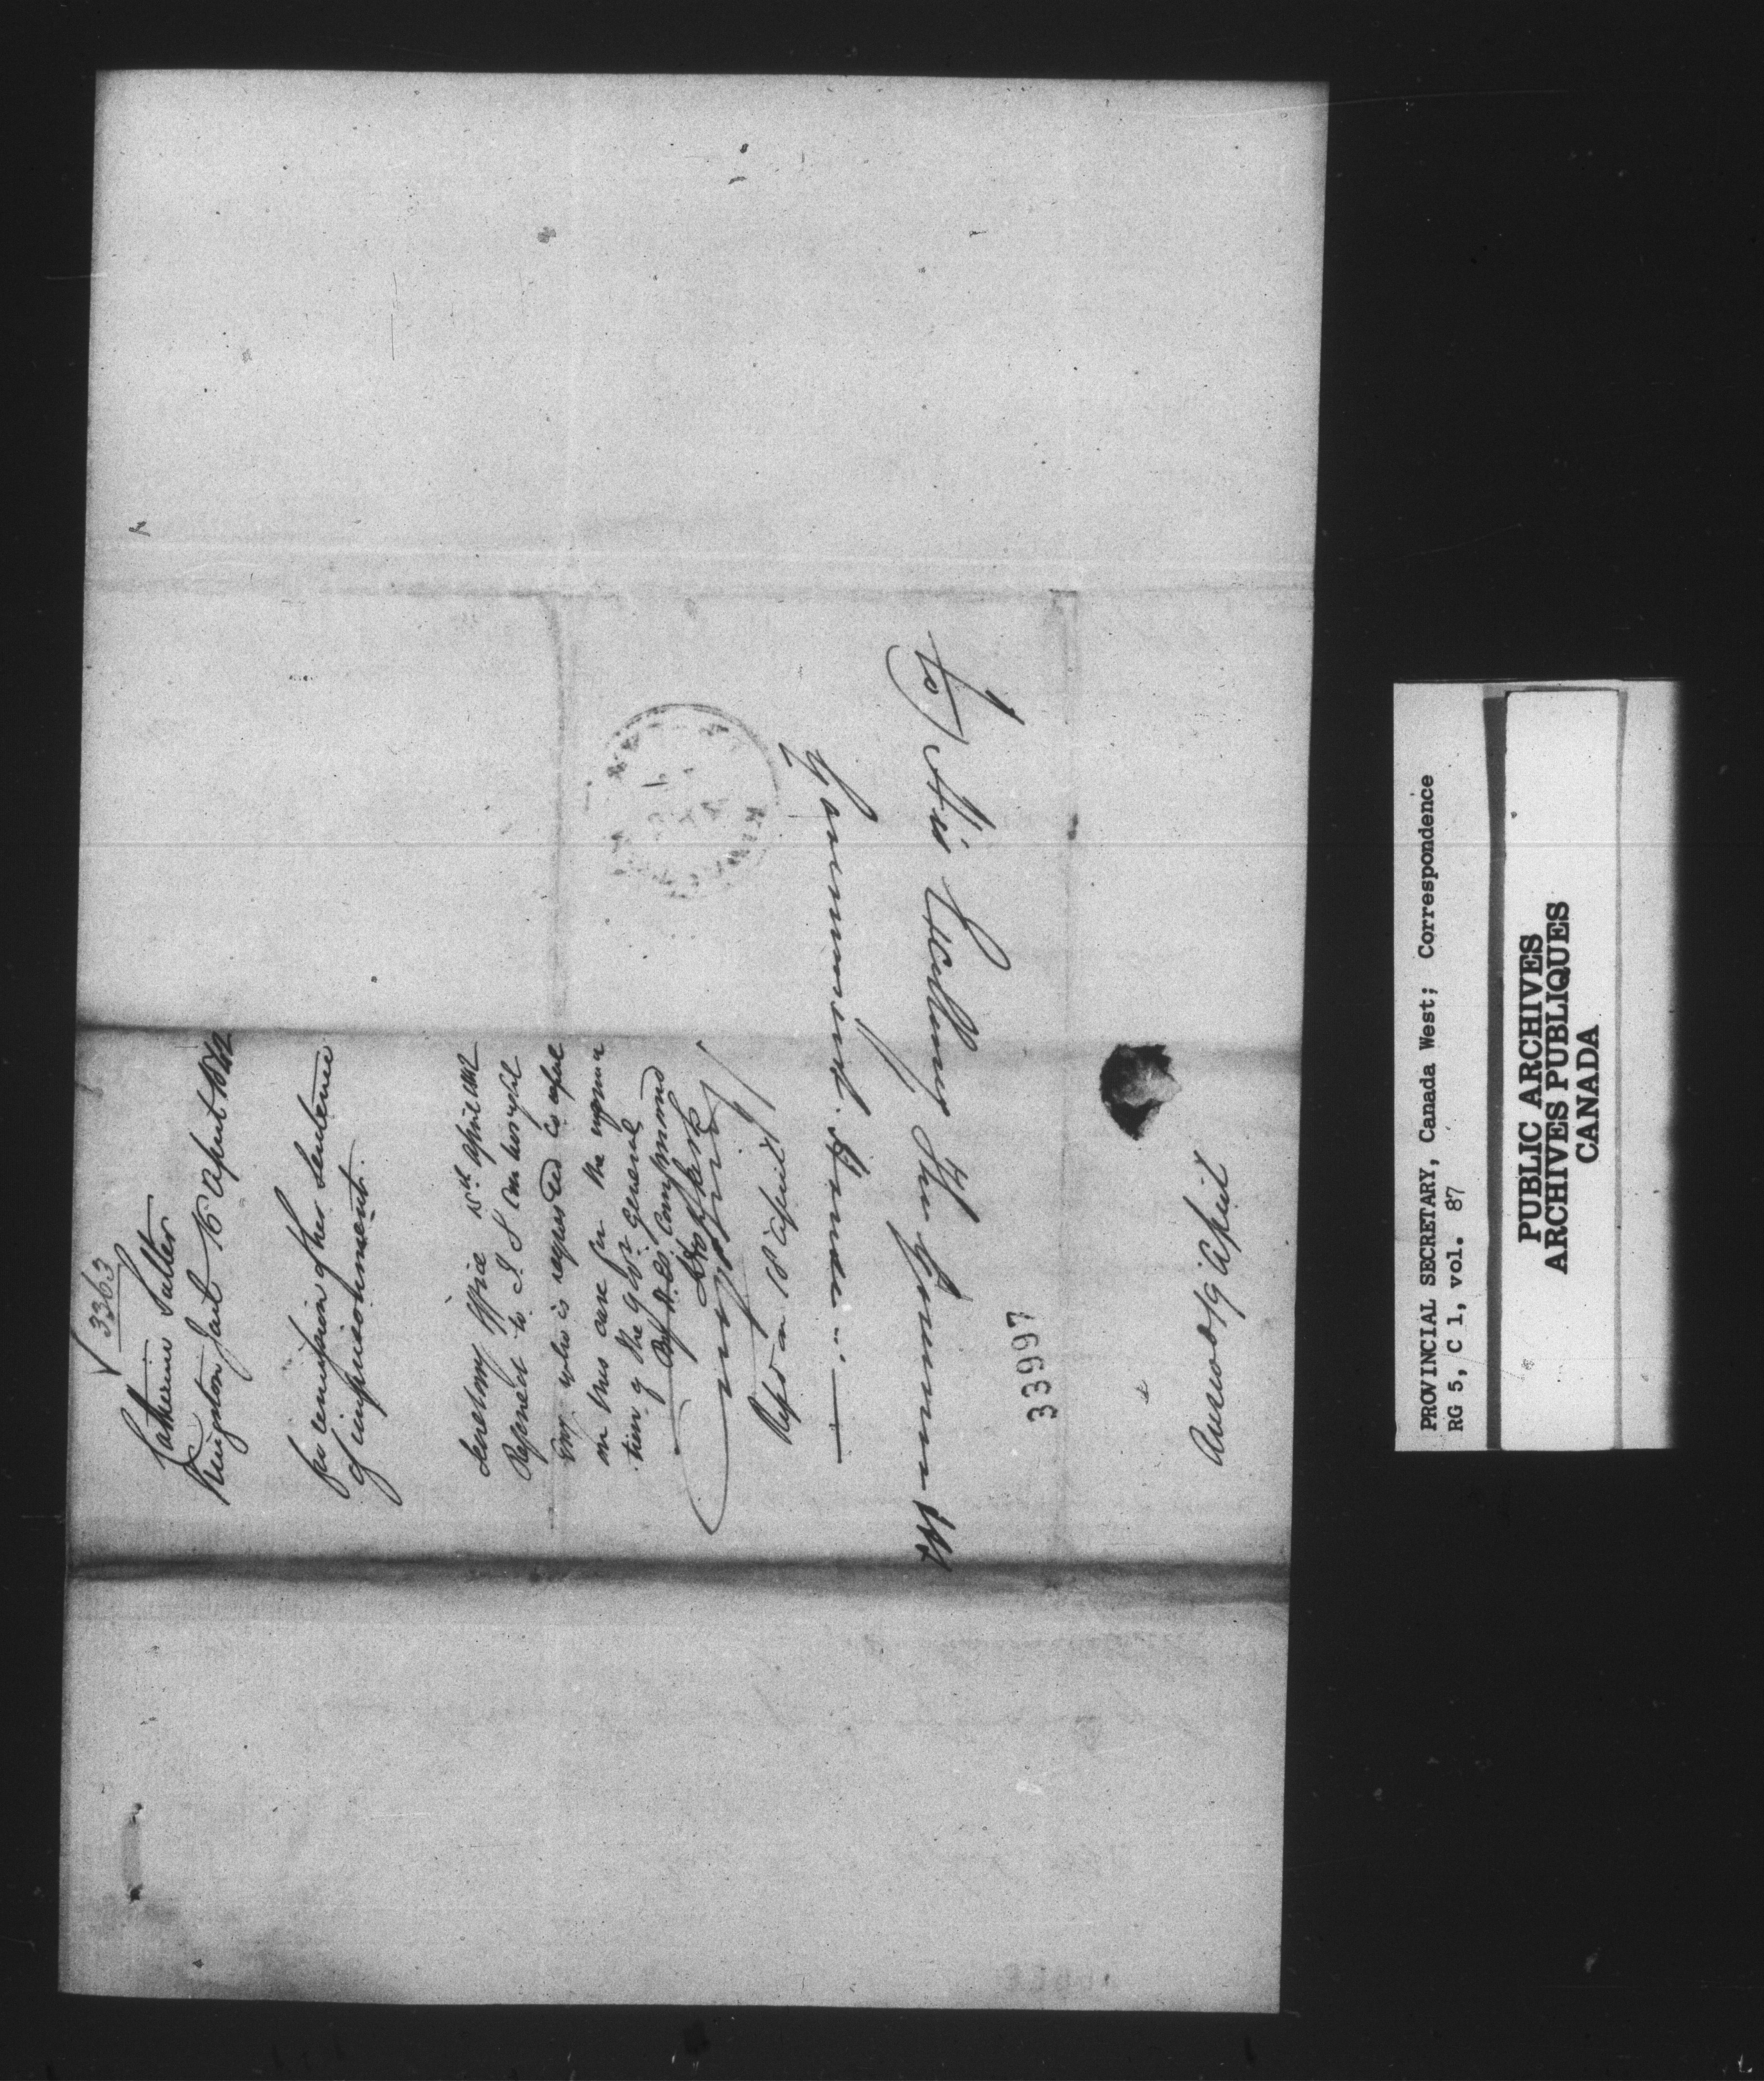 3363
Catherine Salter
Kingston Jail 15 April 1842
for remission of her sentence
of imprisonment.
Secretarys Office 15th April 1842
Referred to
who is requested to
in this case for the
tion of the Govr. General
By H. E's Command
Repd on 18 April
To His Excellency The Governor
Government House
33997
Answd 19 April
PROVINCIAL SECRETARY, Canada West; Correspondence
RG 5, C 1, vol. 87
PUBLIC ARCHIVES
ARCHIVES PUBLIQUES
CANADA